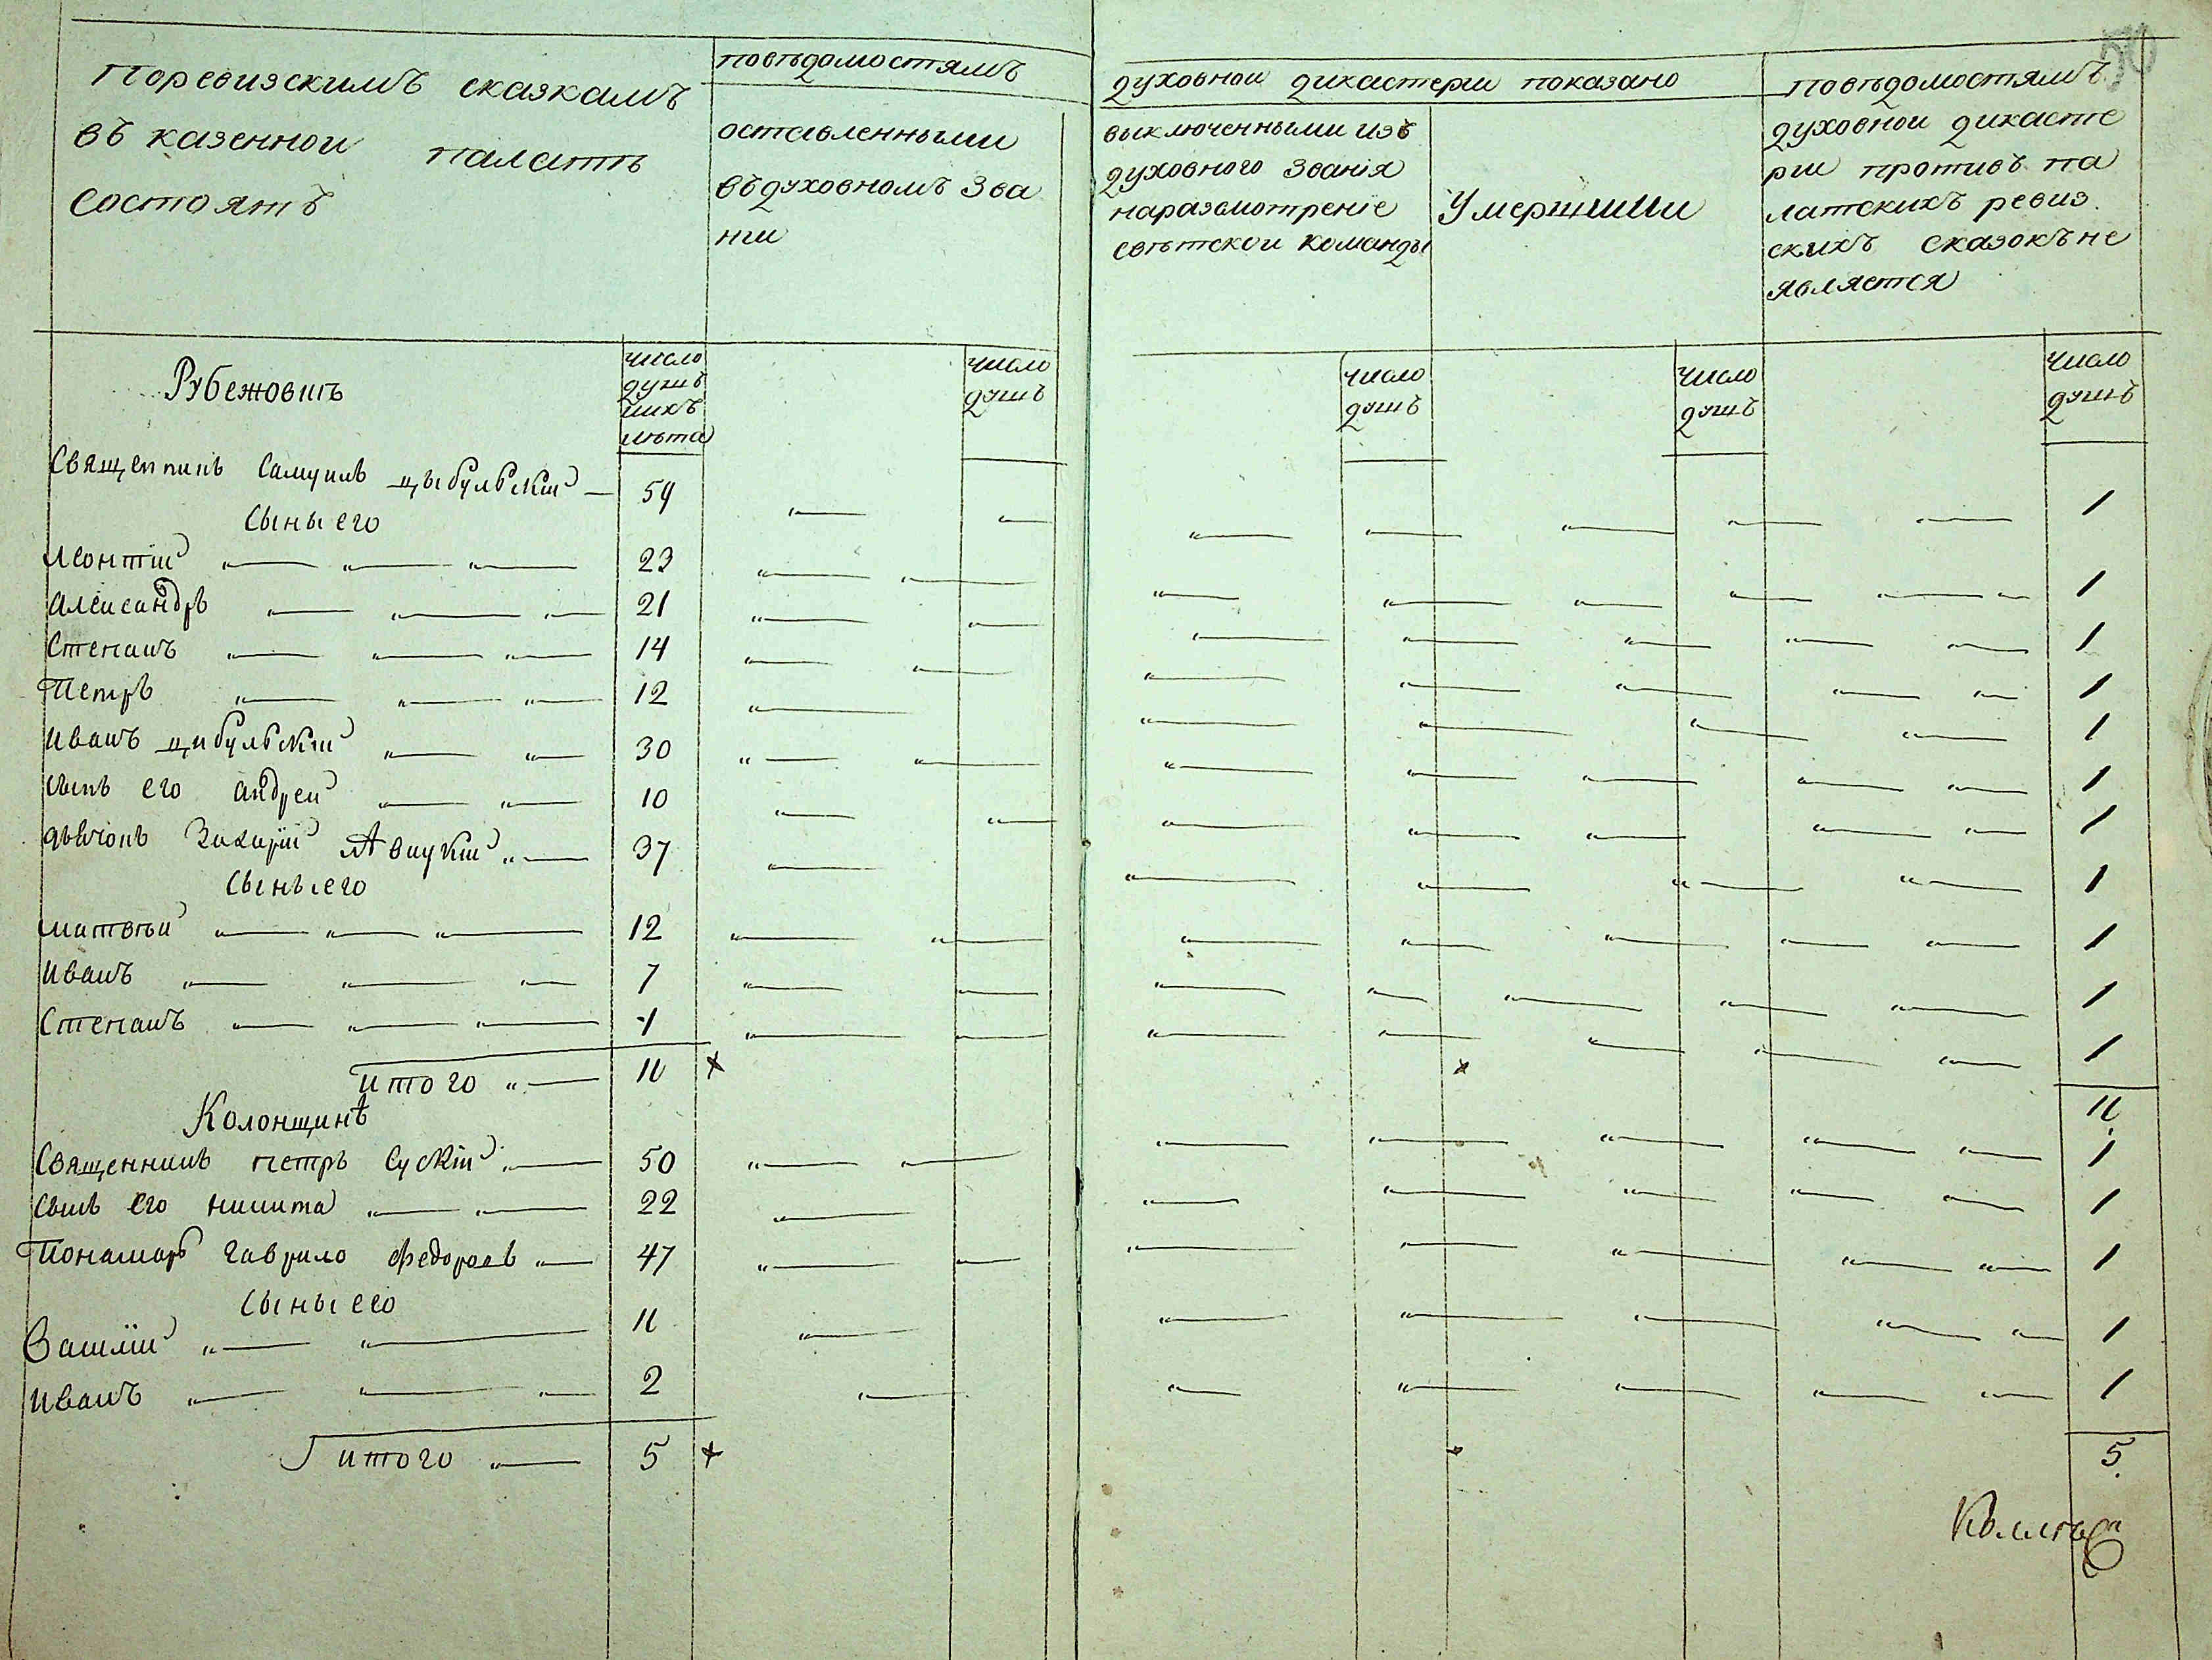 50
Поревизскимъ сказкамъ
въ казенной палатѣ
состоятъ
повѣдомостямъ
оставленными
въдуховномъ зва
нии
духовной дикастерии показано
выключенными изъ
духовного званія
наразсмотреніе
свѣтской команды
Умершими
повѣдомостямъ
духовной дикасте
рии противъ па
латскихъ ревиз
скихъ сказокъ не
является
Рубежовкѣ
число
душъ
ихъ
лѣта
число
душъ
число
душъ
число
душъ
число
душъ
Священникъ Самуилъ Цыбульскій — 59 1
Сыны его
Леонтій 23 1
Александръ 21 1
Степанъ 14 1
Петръ 12 1
Иванъ Цибульскій 30 1
Сынъ его Андрей 10 1
дьячокъ Захарій 37 1
Сыны его
Матвѣй 12 1
Иванъ 7 1
Степанъ 1 1
Итого 11 11
Колонщинѣ
Священникъ Петръ Сускій 50 1
Сынъ его Никита 22 1
Пономаръ Гаврило Федоровъ 47 1
Сыны его
Василій 11 1
Иванъ 2 1
Итого 5 5